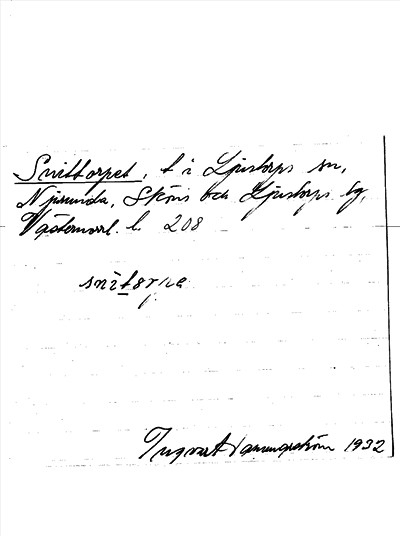 Snittorpet, t i Ljustorps sn,
Njurunda, Sköns och Ljustorps tg,
Västernorrl. l. 208
snitorpe
Ingvart 1932